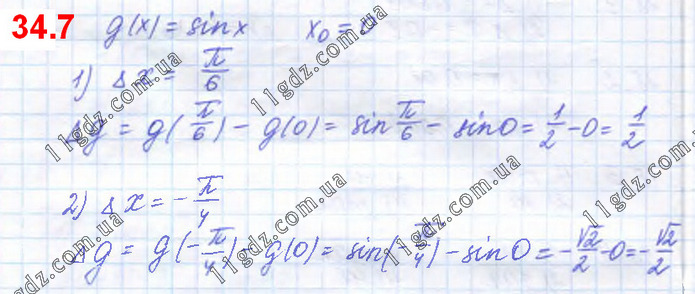 34.7 g(x) = sinx x₀ = 0
1) Δx = π/6
Δg = g(π/6) - g(0) = sin π/6 - sin0 = 1/2 - 0 = 1/2
2) Δx = -π/4
Δg = g(-π/4) - g(0) = sin(-π/4) - sin0 = -√2/2 - 0 = -√2/2
11gdz.com.ua
11gdz.com.ua
11gdz.com.ua
11gdz.com.ua
11gdz.com.ua